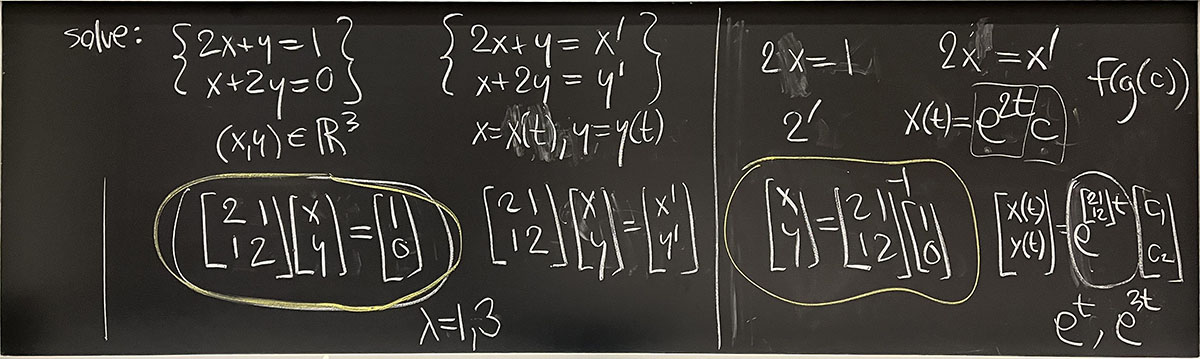 solve: { 2x+y=1 }
{ x+2y=0 }
(x,y) ∈ ℝ³
{ 2x+y = x' }
{ x+2y = y' }
x=x(t), y=y(t)
[2 1; 1 2] [x; y] = [1; 0]
[2 1; 1 2] [x; y] = [x'; y']
λ=1,3
2x=1
2'
2x = x'
x(t)= e^{2t} c
f(g(c))
[x; y] = [2 1; 1 2]^{-1} [1; 0]
[x(t); y(t)] = e^{[2 1; 1 2]t} [c₁; c₂]
e^t, e^{3t}